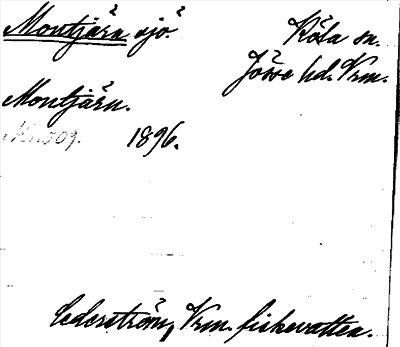 Montjärn sjö.
Köla sn.
Jösse hd. Vrm.
Montjärn.
1896.
Cederström, Vrm. fiskevatten.